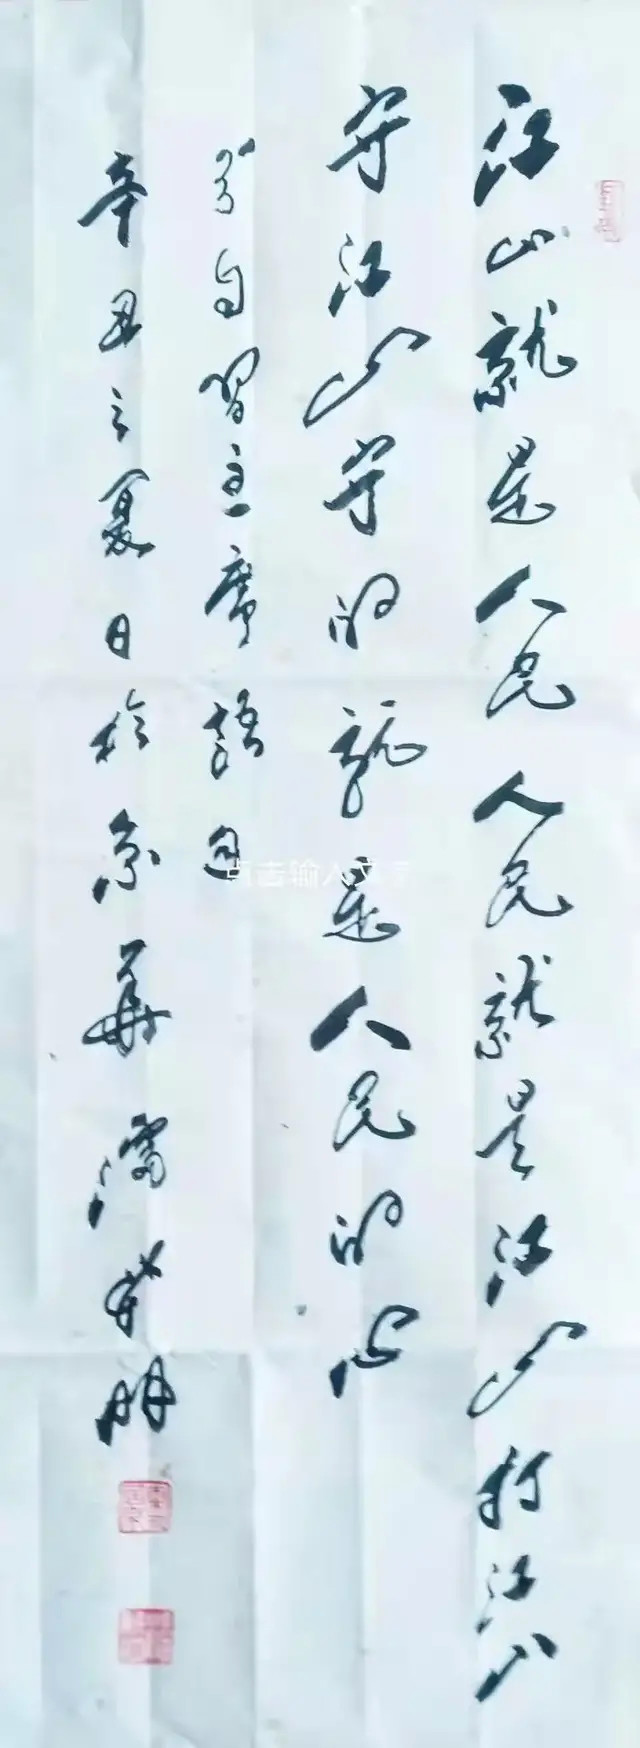 江山就是人民人民就是江山打江山
守江山守的就是人民的心
自习主席语
辛丑之夏日于京华
点击输入文字